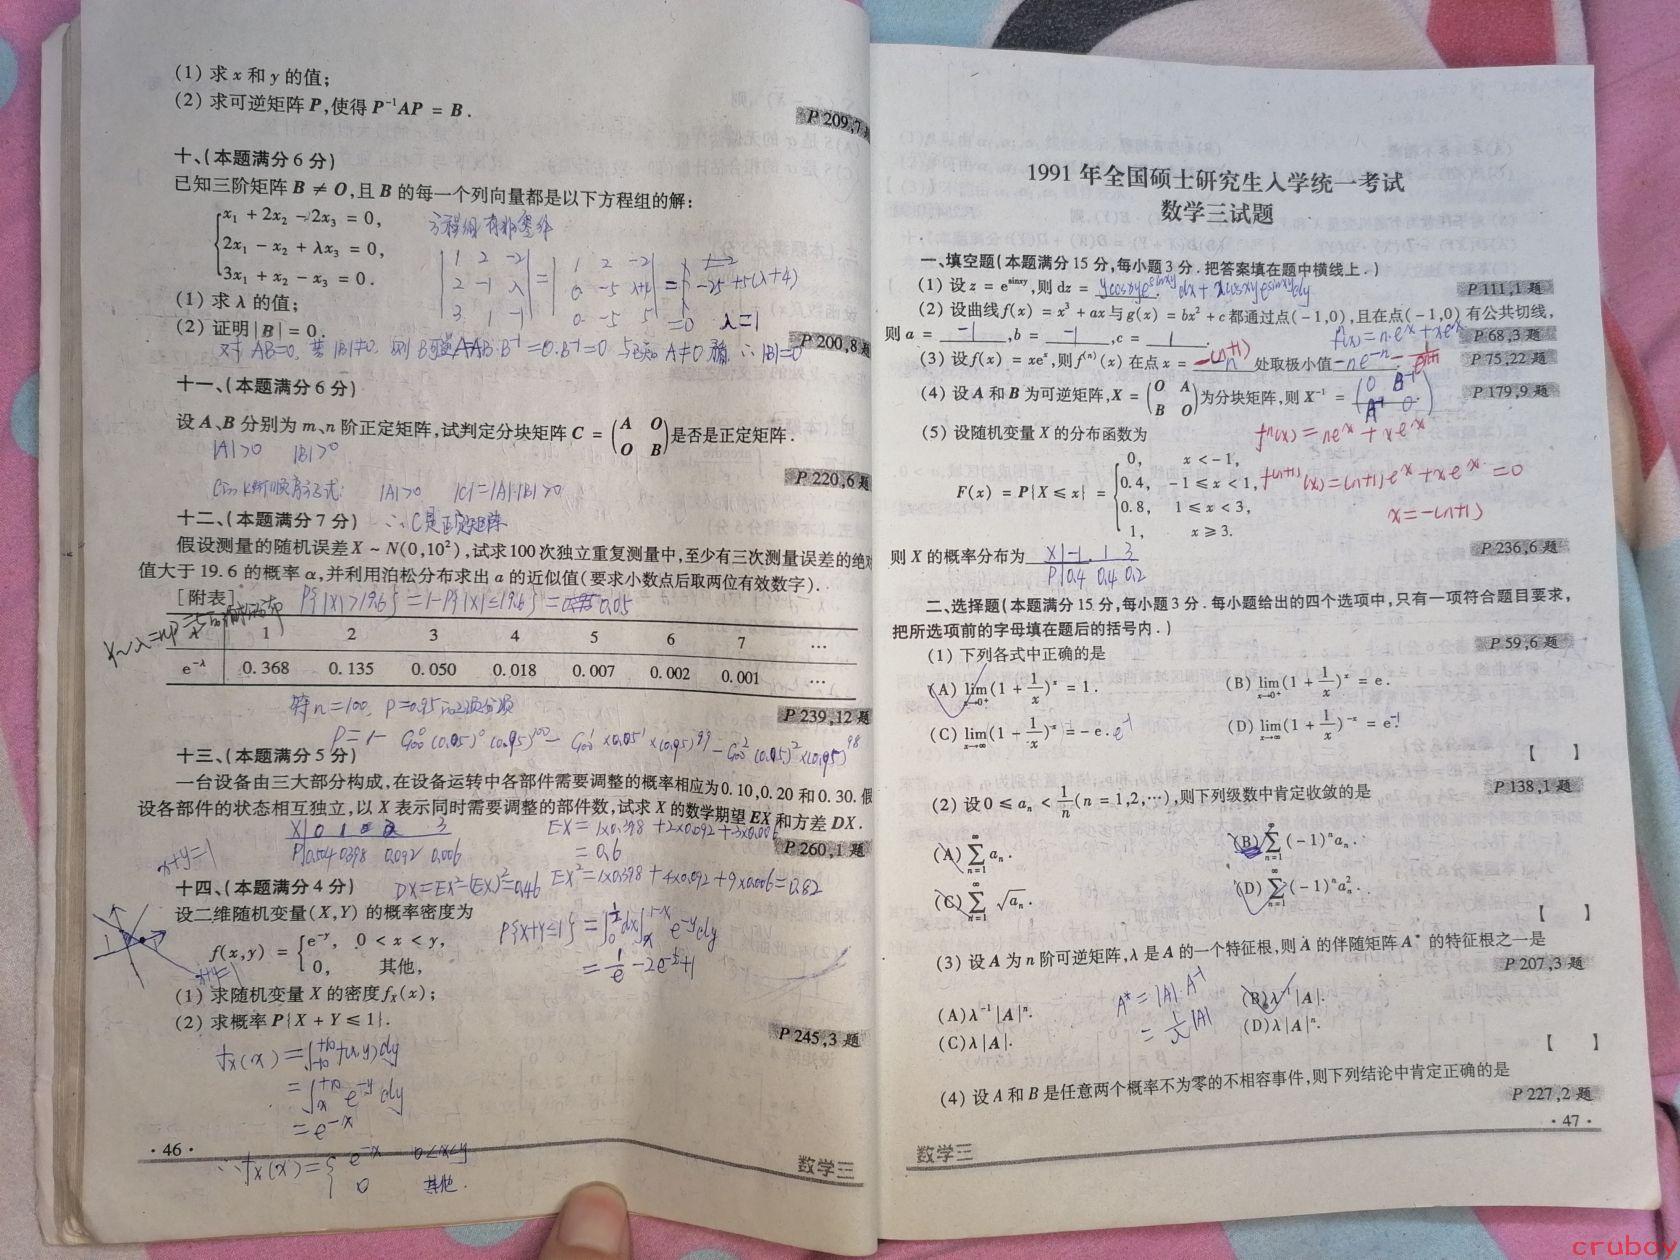 (1) 求 x 和 y 的值;
(2) 求可逆矩阵 P,使得 P⁻¹AP = B.
P 209,7 题
十、(本题满分 6 分)
已知三阶矩阵 B ≠ O,且 B 的每一个列向量都是以下方程组的解:
x₁ + 2x₂ - 2x₃ = 0,
2x₁ - x₂ + λx₃ = 0,
3x₁ + x₂ - x₃ = 0.
方程组有非零解
1 2 -2
2 -1 λ
3 1 -1
=
1 2 -2
0 -5 λ+4
0 -5 5
=0 λ=1
(1) 求 λ 的值;
(2) 证明|B| = 0.
P 200,8 题
对 AB=0, 若 |B|≠0, 则 B可逆 A=AB·B⁻¹=0·B⁻¹=0 与已知 A≠0 矛 ∴|B|=0
十一、(本题满分 6 分)
设 A、B 分别为 m、n 阶正定矩阵,试判定分块矩阵 C = (A O O B) 是否是正定矩阵.
|A|>0 |B|>0
P 220,6 题
|A|>0 |C|=|A|·|B|>0
∴C是正定矩阵
十二、(本题满分 7 分)
假设测量的随机误差 X ~ N(0,10²),试求100次独立重复测量中,至少有三次测量误差的绝
值大于 19.6 的概率 α,并利用泊松分布求出 α 的近似值(要求小数点后取两位有效数字).
[附表]
P{|X|>19.6}=1-P{|X|≤19.6}= 0.05
λ 1 2 3 4 5 6 7 …
e^{-λ} 0.368 0.135 0.050 0.018 0.007 0.002 0.001 …
P 239,12 题
P=1- C₁₀₀⁰(0.05)⁰(0.95)¹⁰⁰ - C₁₀₀¹×0.05¹×(0.95)⁹⁹ - C₁₀₀²(0.05)²×(0.95)⁹⁸
十三、(本题满分 5 分)
一台设备由三大部分构成,在设备运转中各部件需要调整的概率相应为0.10,0.20 和0.30. 假
设各部件的状态相互独立,以 X 表示同时需要调整的部件数,试求 X 的数学期望 EX 和方差 DX.
X 0 1 2 3
P 0.504 0.398 0.092 0.006
EX=1×0.398+2×0.092+3×0.006
=0.6
P 260,1 题
x+y=1
EX²=1×0.398+4×0.092+9×0.006=0.82
DX=EX²-(EX)²=0.46
十四、(本题满分 4 分)
设二维随机变量(X,Y) 的概率密度为
f(x,y) = { e^{-y}, 0 < x < y,
0, 其他,
P{X+Y≤1}=∫₀^{1/2}dx∫ₓ^{1-x}e^{-y}dy
=1/e-2e^{-1/2}+1
x+y=1
(1) 求随机变量 X 的密度 f_X(x);
(2) 求概率 P{X + Y ≤ 1}.
P 245,3 题
f_X(x)=∫_{-∞}^{+∞}f(x,y)dy
=∫ₓ^{+∞}e^{-y}dy
=e^{-x}
∴f_X(x)={ e^{-x} 0<x<y
0 其他.
· 46 ·
数学三
1991 年全国硕士研究生入学统一考试
数学三试题
一、填空题(本题满分 15 分,每小题 3 分. 把答案填在题中横线上.)
P 111,1 题
(1) 设 z = e^{sinxy},则 dz = ycosxye^{sinxy}dx+xcosxye^{sinxy}dy
(2) 设曲线 f(x) = x³ + ax 与 g(x) = bx² + c 都通过点(-1,0),且在点(-1,0) 有公共切线,
则 a = -1 ,b = -1 ,c = 1 .
P 68,3 题
(3) 设 f(x) = xe^x,则 f^{(n)}(x) 在点 x = -(n+1) 处取极小值
P 75,22 题
(4) 设 A 和 B 为可逆矩阵,X = (O A B O) 为分块矩阵,则 X⁻¹ = (0 B⁻¹ A⁻¹ 0).
P 179,9 题
(5) 设随机变量 X 的分布函数为
fⁿ(x)=ne^x+xe^x
F(x) = P{X ≤ x} = { 0, x < -1,
0.4, -1 ≤ x < 1,
0.8, 1 ≤ x < 3,
1, x ≥ 3.
f^{(n+1)}(x)=(n+1)e^x+xe^x=0
x=-(n+1)
P 236,6 题
则 X 的概率分布为 X -1 1 3
P 0.4 0.4 0.2
二、选择题(本题满分 15 分,每小题 3 分. 每小题给出的四个选项中,只有一项符合题目要求,
把所选项前的字母填在题后的括号内.)
P 59,6 题
(1) 下列各式中正确的是
(A) lim_{x→0⁺}(1 + 1/x)^x = 1. (B) lim_{x→0⁺}(1 + 1/x)^x = e.
(C) lim_{x→∞}(1 - 1/x)^x = - e. e⁻¹ (D) lim_{x→∞}(1 + 1/x)^{-x} = e.⁻¹
【 】
(2) 设 0 ≤ aₙ < 1/n (n = 1,2,…),则下列级数中肯定收敛的是
P 138,1 题
(A) ∑_{n=1}^∞ aₙ. (B) ∑_{n=1}^∞ (-1)ⁿaₙ.
(C) ∑_{n=1}^∞ √aₙ. (D) ∑_{n=1}^∞ (-1)ⁿaₙ².
【 】
(3) 设 A 为 n 阶可逆矩阵,λ 是 A 的一个特征根,则 A 的伴随矩阵 A* 的特征根之一是
P 207,3 题
(A) λ⁻¹|A|ⁿ. A*=|A|·A⁻¹ (B) λ⁻¹|A|.
(C) λ|A|. =1/λ|A| (D) λ|A|ⁿ.
【 】
(4) 设 A 和 B 是任意两个概率不为零的不相容事件,则下列结论中肯定正确的是
P 227,2 题
· 47 ·
数学三
cruboy